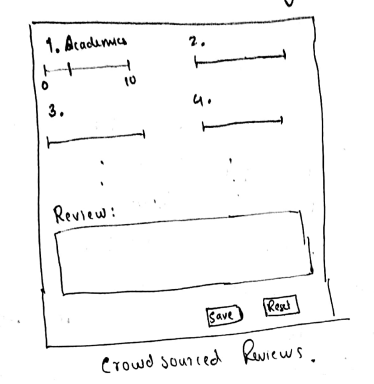 1. Academics 2.
0 10
3. 4.
Review:
Save Reset
Crowdsourced Reviews.